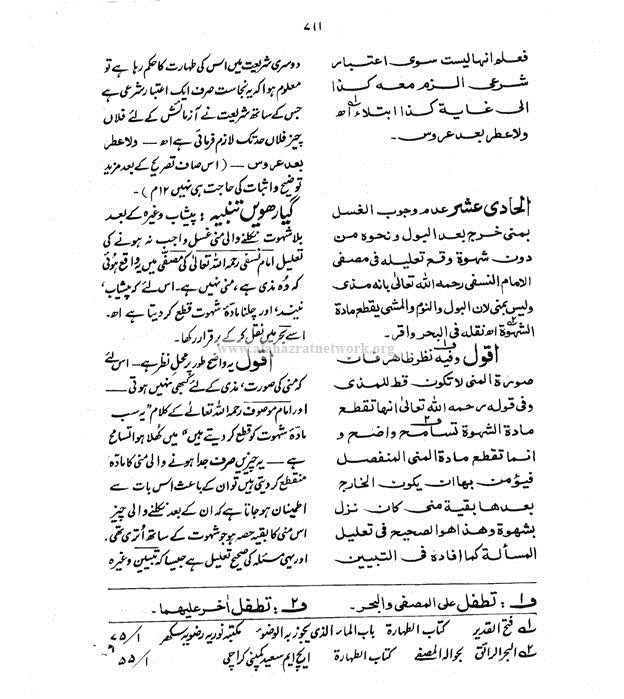 ۷۱۱
فعلم انها ليست سوى اعتبار
شرعى الزم معه كذا
الى غاية كذا ابتلاء اھ
ولا عطر بعد عروس۔
الحادی عشر عدم وجوب الغسل
بمنى خرج بعد البول و نحوه من
دون شهوة وقع تعليله فى مصفى
الامام النسفى رحمه الله تعالى بانه مذى
وليس بمنى لان البول والنوم والمشى يقطع مادة
الشهوة اھ نقله فى البحر واقر۔
اقول وفيه نظر ظاهر فان
صورة المنى لا تكون قط للمذى
وفى قوله رحمه الله تعالى انها تقطع
مادة الشهوة تسامح واضح و
انما تقطع مادة المنى المنفصل
فيؤمن بها ان يكون الخارج
بعدها بقية منى كان نزل
بشهوة وهذا هو الصحيح فى تعليل
المسألة كما افاده فى التبيين
دوسری شریعت میں اس کی طہارت کا حکم رہا ہے تو
معلوم ہوا کہ یہ نجاست صرف ایک اعتبار شرعی ہے
جس کے ساتھ شریعت نے آزمائش کے لئے فلاں
چیز فلاں حد تک لازم فرمائی ہے اھ — ولا عطر
بعد عروس — (اس صاف تصریح کے بعد مزید
توضیح و اثبات کی حاجت ہی نہیں ۱۲م)۔
گیارھویں تنبیہ : پیشاب وغیرہ کے بعد
بلا شہوت نکلنے والی منی غسل واجب نہ ہونے کی
تعلیل امام نسفی رحمہ اللہ تعالٰی کی مصفّی میں یہ واقع ہوئی
کہ وُہ مذی ہے، منی نہیں ہے۔ اس لئے کہ پیشاب،
نیند، اور چلنا مادّۂ شہوت قطع کر دیتا ہے اھ۔
اسے بحر میں نقل کر کے برقرار رکھا۔
اقول یہ واضح طور پر محلِ نظر ہے— اس لئے
کہ منی کی صورت، مذی کے لئے کبھی نہیں ہوتی —
اور امام موصوف رحمہ اللہ تعالٰے کے کلام "یہ سب
مادّۂ شہوت کو قطع کر دیتے ہیں" میں کھلا ہوا تسامح
ہے — یہ چیزیں صرف جدا ہونے والی منی کا مادّہ
منقطع کر دیتی ہیں تو ان کے باعث اس بات سے
اطمینان ہو جانا ہے کہ ان کے بعد نکلنے والی چیز
اس منی کا بقیہ حصہ ہو جو شہوت کے ساتھ اُتری تھی۔
اور یہی مسئلہ کی صحیح تعلیل ہے جیسا کہ تبیین وغیرہ
www.alahazratnetwork.org
ف۱ : تطفل على المصفى والبحر۔ ف۲ : تطفل اٰخر عليهما۔
۱؎ فتح القدیر کتاب الطہارۃ باب الماء الذی یجوز بہ الوضوء مکتبہ نوریہ رضویہ سکھر ۱/ ۷۵
۲؎ البحر الرائق بحوالہ المصفے کتاب الطہارۃ ایچ ایم سعید کمپنی کراچی ۱/ ۵۵